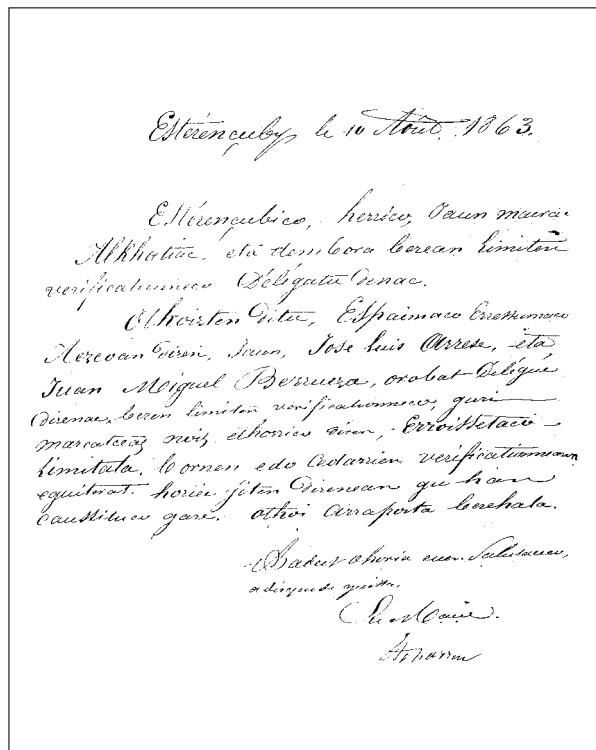 Estérençuby le 10 Août 1863.
Estérençubico, herrico, Jaun maira
Alkhatiac, eta dembora berean limiten
verificationneco Délégatu denac.
Othoizten ditu, Espainiaco Erresumaco
Aezcoan diren, Jaun, José Luis Arrese, eta
Juan Miguel Berrueza, orobat Délégué
direnac, beren limiten verificationneco, guri
marcatceaz noiz ethorico diren, Erroissetaco
Limitala, bornen edo Cedarrien verificationearen
eguiterat. horiec jiten direnean gu han
causituco gare. othoi arraporta berehala.
Badut ohoria zuen Salutaceco,
Le Maire.